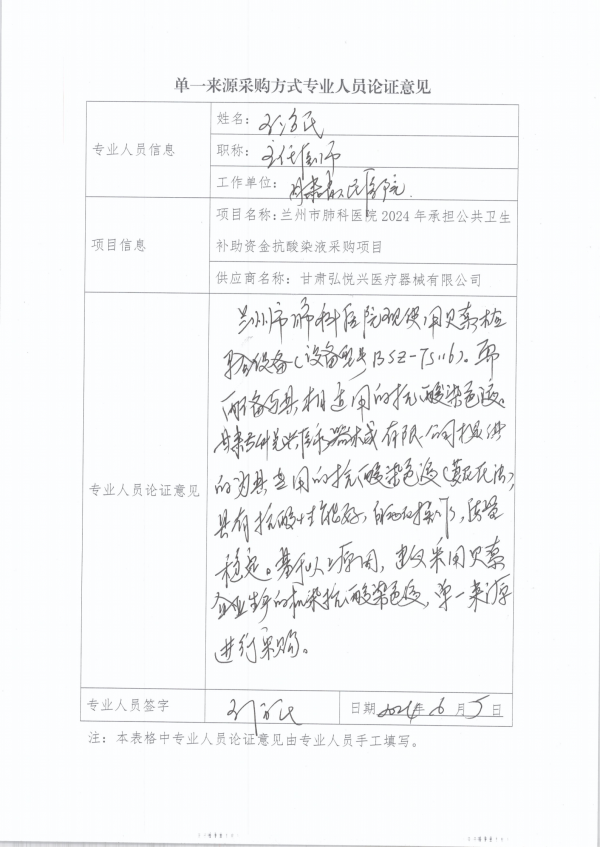 单一来源采购方式专业人员论证意见
专业人员信息
姓名：
职称：主任医师
工作单位：
项目信息
项目名称：兰州市肺科医院2024年承担公共卫生
补助资金抗酸染液采购项目
供应商名称：甘肃弘悦兴医疗器械有限公司
专业人员论证意见
兰州市肺科医院现使用贝索检
设备（设备型号BSZ-TS116）。需
配备与其相适用的抗酸染色液。
器械有限公司提供
的为其专用的抗酸染色液
具有抗酸性能好，质量
稳定。基于以上原因，建议采用贝索
企业生产的抗酸染色液，单一来源
进行采购。
专业人员签字
日期 2024年6月5日
注：本表格中专业人员论证意见由专业人员手工填写。